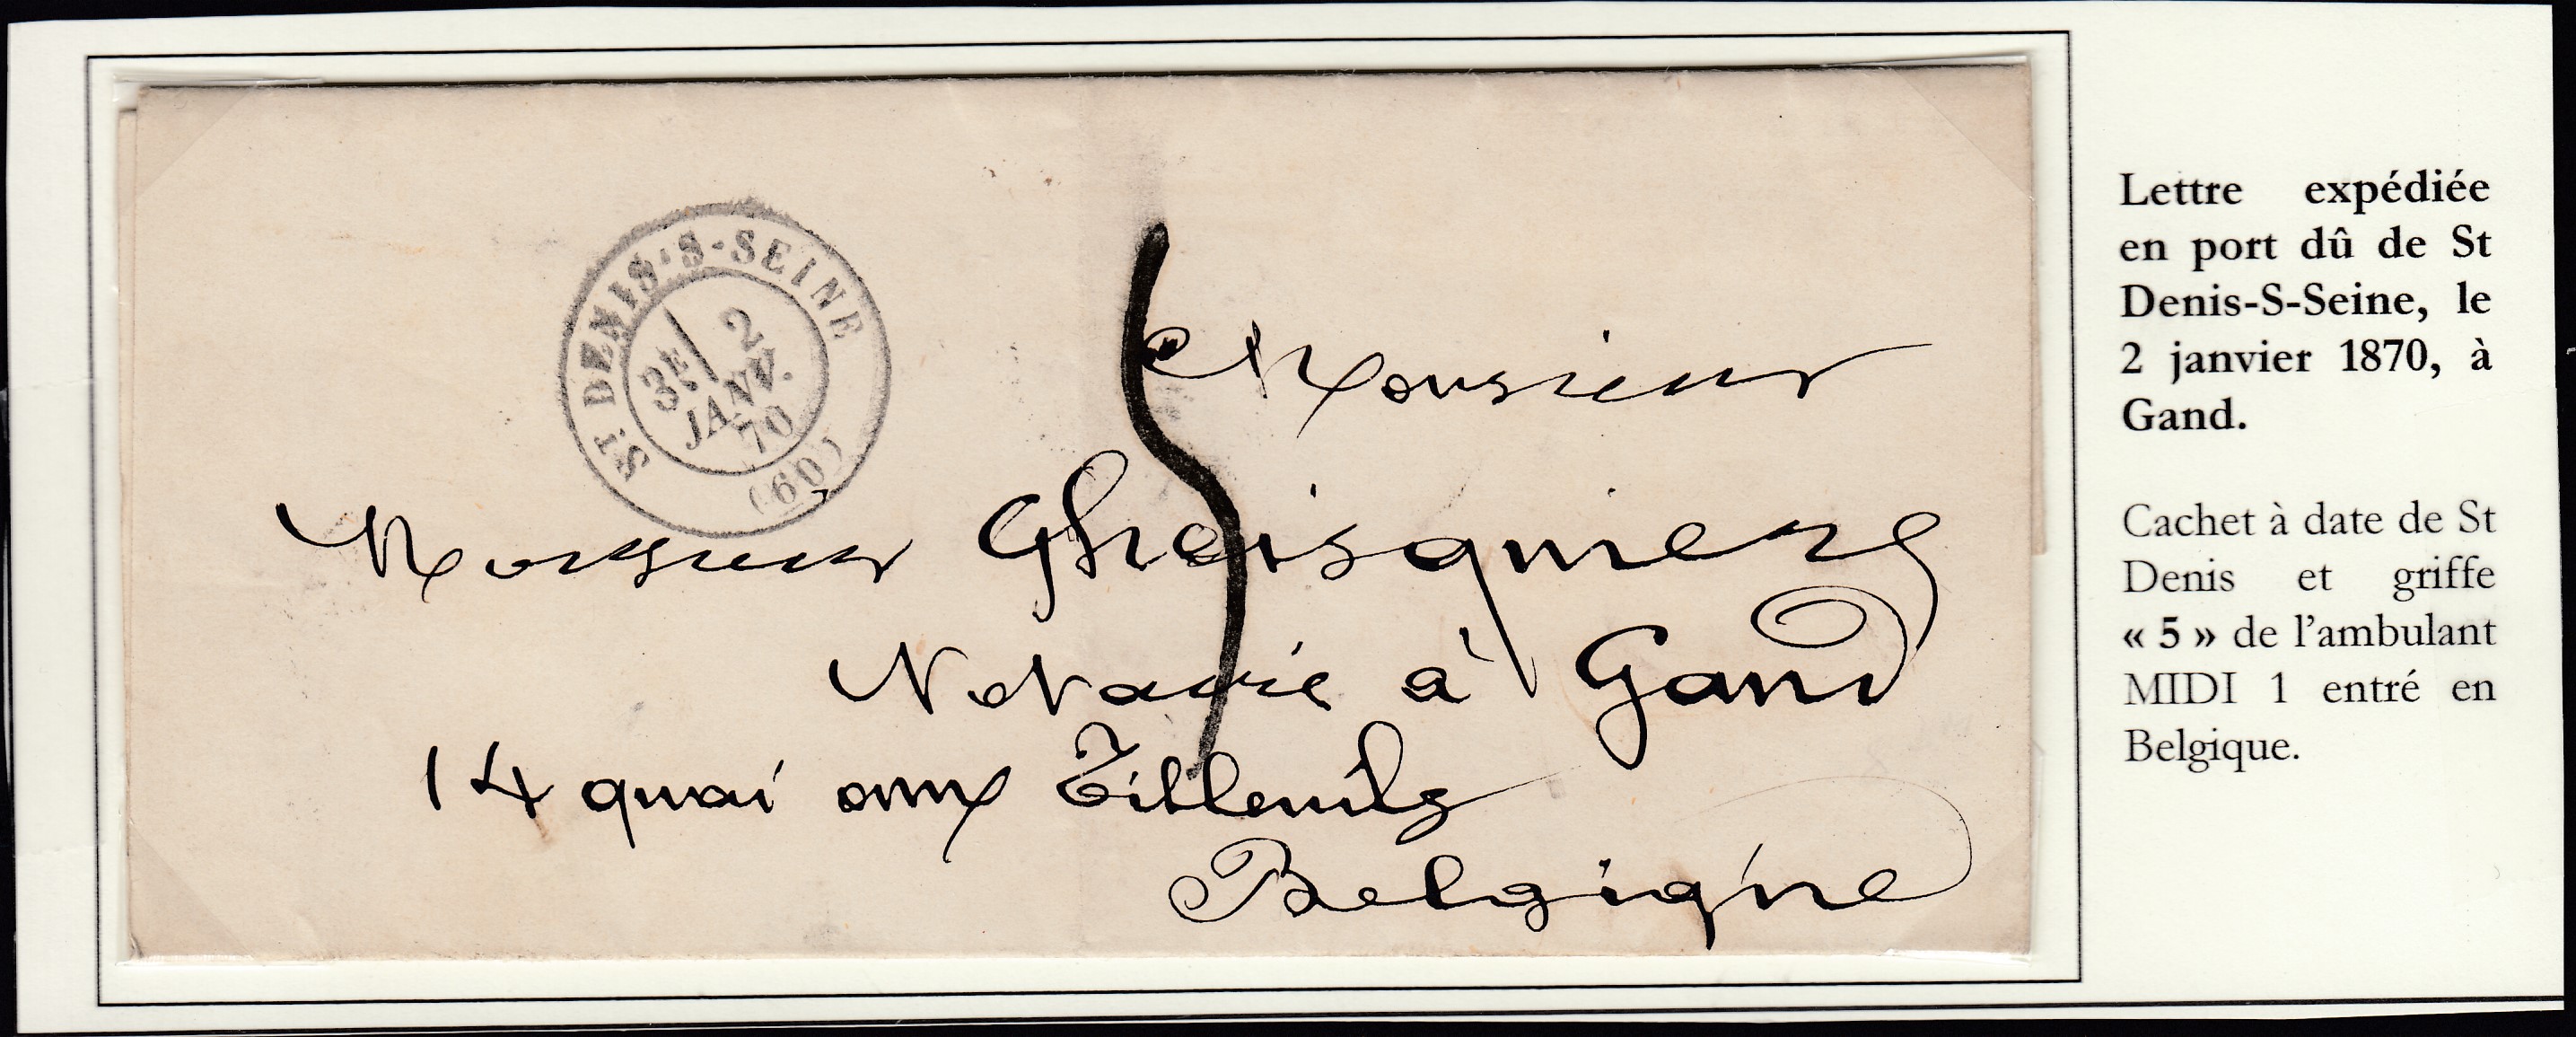 ST. DENIS-S-SEINE
3E
2
JANV.
70
(60)
5
Monsieur
Monsieur Gheisquiere
Notaire à Gand
14 quai aux Tilleuils
Belgique
Lettre expédiée
en port dû de St
Denis-S-Seine, le
2 janvier 1870, à
Gand.
Cachet à date de St
Denis et griffe
« 5 » de l'ambulant
MIDI 1 entré en
Belgique.